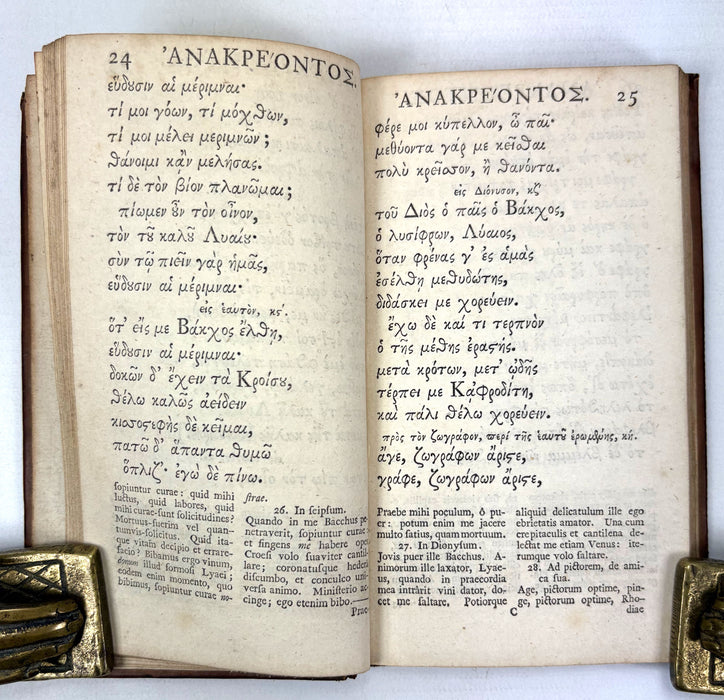 24 ἈΝΑΚΡΕΌΝΤΟΣ.
εὕδουσιν αἱ μέριμναι·
τί μοι γόων, τί μόχθων,
τί μοι μέλει μεριμνῶν;
θάνοιμι κᾂν μελήσας.
τί δὲ τὸν βίον πλανῶμαι;
πίωμεν οὖν τὸν οἶνον,
τὸν τοῦ καλοῦ Λυαίου·
σὺν τῷ πιεῖν γὰρ ἡμᾶς,
εὕδουσιν αἱ μέριμναι·
εἰς ἑαυτὸν, κϛ΄.
ὅτ' εἴς με Βάκχος ἔλθῃ,
εὕδουσιν αἱ μέριμναι·
δοκῶν δ' ἔχειν τὰ Κροίσου,
θέλω καλῶς ἀείδειν
κισσοστεφὴς δὲ κεῖμαι,
πατῶ δ' ἅπαντα θυμῷ
ὅπλιζ'· ἐγὼ δὲ πίνω.
sopiuntur curae: quid mihi
luctus, quid labores, quid
mihi curae-sunt solicitudines?
Mortuus-fuerim vel quan-
tumvis-solicitus. Quid ita-
que vitam decipio et errare-
facio? Bibamus ergo vinum,
donum illud formosi Lyaei;
eodem enim momento, quo
bibimus, sopiuntur curae no-
strae.
26. In seipsum.
Quando in me Bacchus pe-
netraverit, sopiuntur curae
et fingens me habere opes
Croesi volo suaviter cantil-
lare; coronatusque hedera
discumbo, et conculco uni-
versa animo. Ministerio ac-
cinge; ego etenim bibo.—
Prae-
ἈΝΑΚΡΕΌΝΤΟΣ. 25
φέρε μοι κύπελλον, ὦ παῖ·
μεθύοντα γάρ με κεῖσθαι
πολὺ κρεῖσσον, ἢ θανόντα.
εἰς Διόνυσον, κζ΄
τοῦ Διὸς ὁ παῖς ὁ Βάκχος,
ὁ λυσίφρων, Λύαιος,
ὅταν φρένας γ' ἐς ἁμὰς
ἐσέλθῃ μεθυδώτης,
διδάσκει με χορεύειν.
ἔχω δὲ καί τι τερπνὸν
ὁ τῆς μέθης ἐραστής.
μετὰ κρότων, μετ' ᾠδῆς
τέρπει με Κᾀφροδίτη,
καὶ πάλι θέλω χορεύειν.
πρὸς τὸν ζωγράφον, περὶ τῆς ἑαυτοῦ ἐρωμένης, κη.
ἄγε, ζωγράφων ἄριστε,
γράφε, ζωγράφων ἄριστε,
Praebe mihi poculum, ô pu-
er: potum enim me jacere
multo satius, quam mortuum.
27. In Dionysum.
Jovis puer ille Bacchus. A-
nimorum ille laxator, Lyae-
us, quando in praecordia
mea intrârit vini dator, do-
cet me saltare. Potiorque
aliquid delicatulum ille ego
ebrietatis amator. Una cum
crepitaculis et cantilena de-
lectat me etiam Venus: ite-
rumque volo saltare.
28. Ad pictorem, de ami-
ca sua.
Age, pictorum optime, pin-
ge, pictorum optime, Rho-
C diae